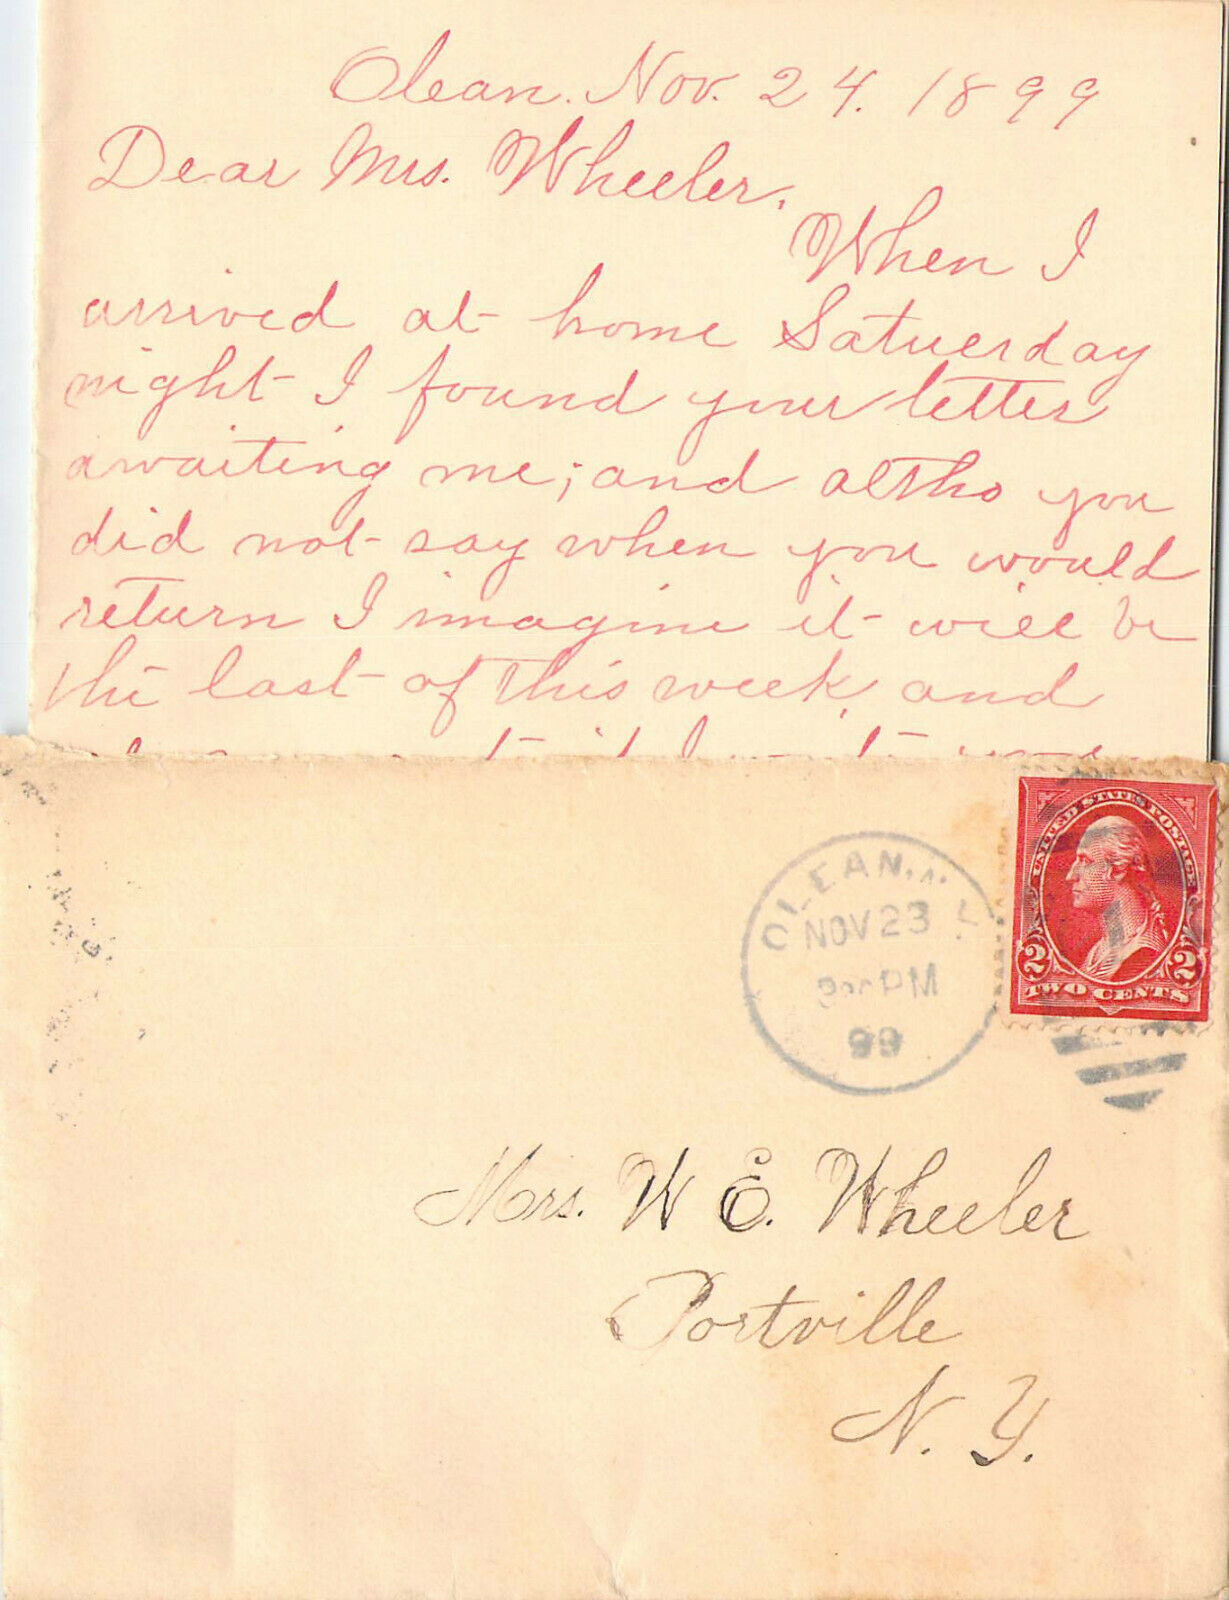 Olean. Nov. 24. 1899
Dear Mrs. Wheeler,
When I
arrived at home Satuerday
night I found your letter
awaiting me; and altho you
did not say when you would
return I imagine it will be
the last of this week, and
OLEAN, N.Y.
NOV 23
PM
99
UNITED STATES POSTAGE
2 2
TWO CENTS
Mrs. W E. Wheeler
Portville
N. Y.